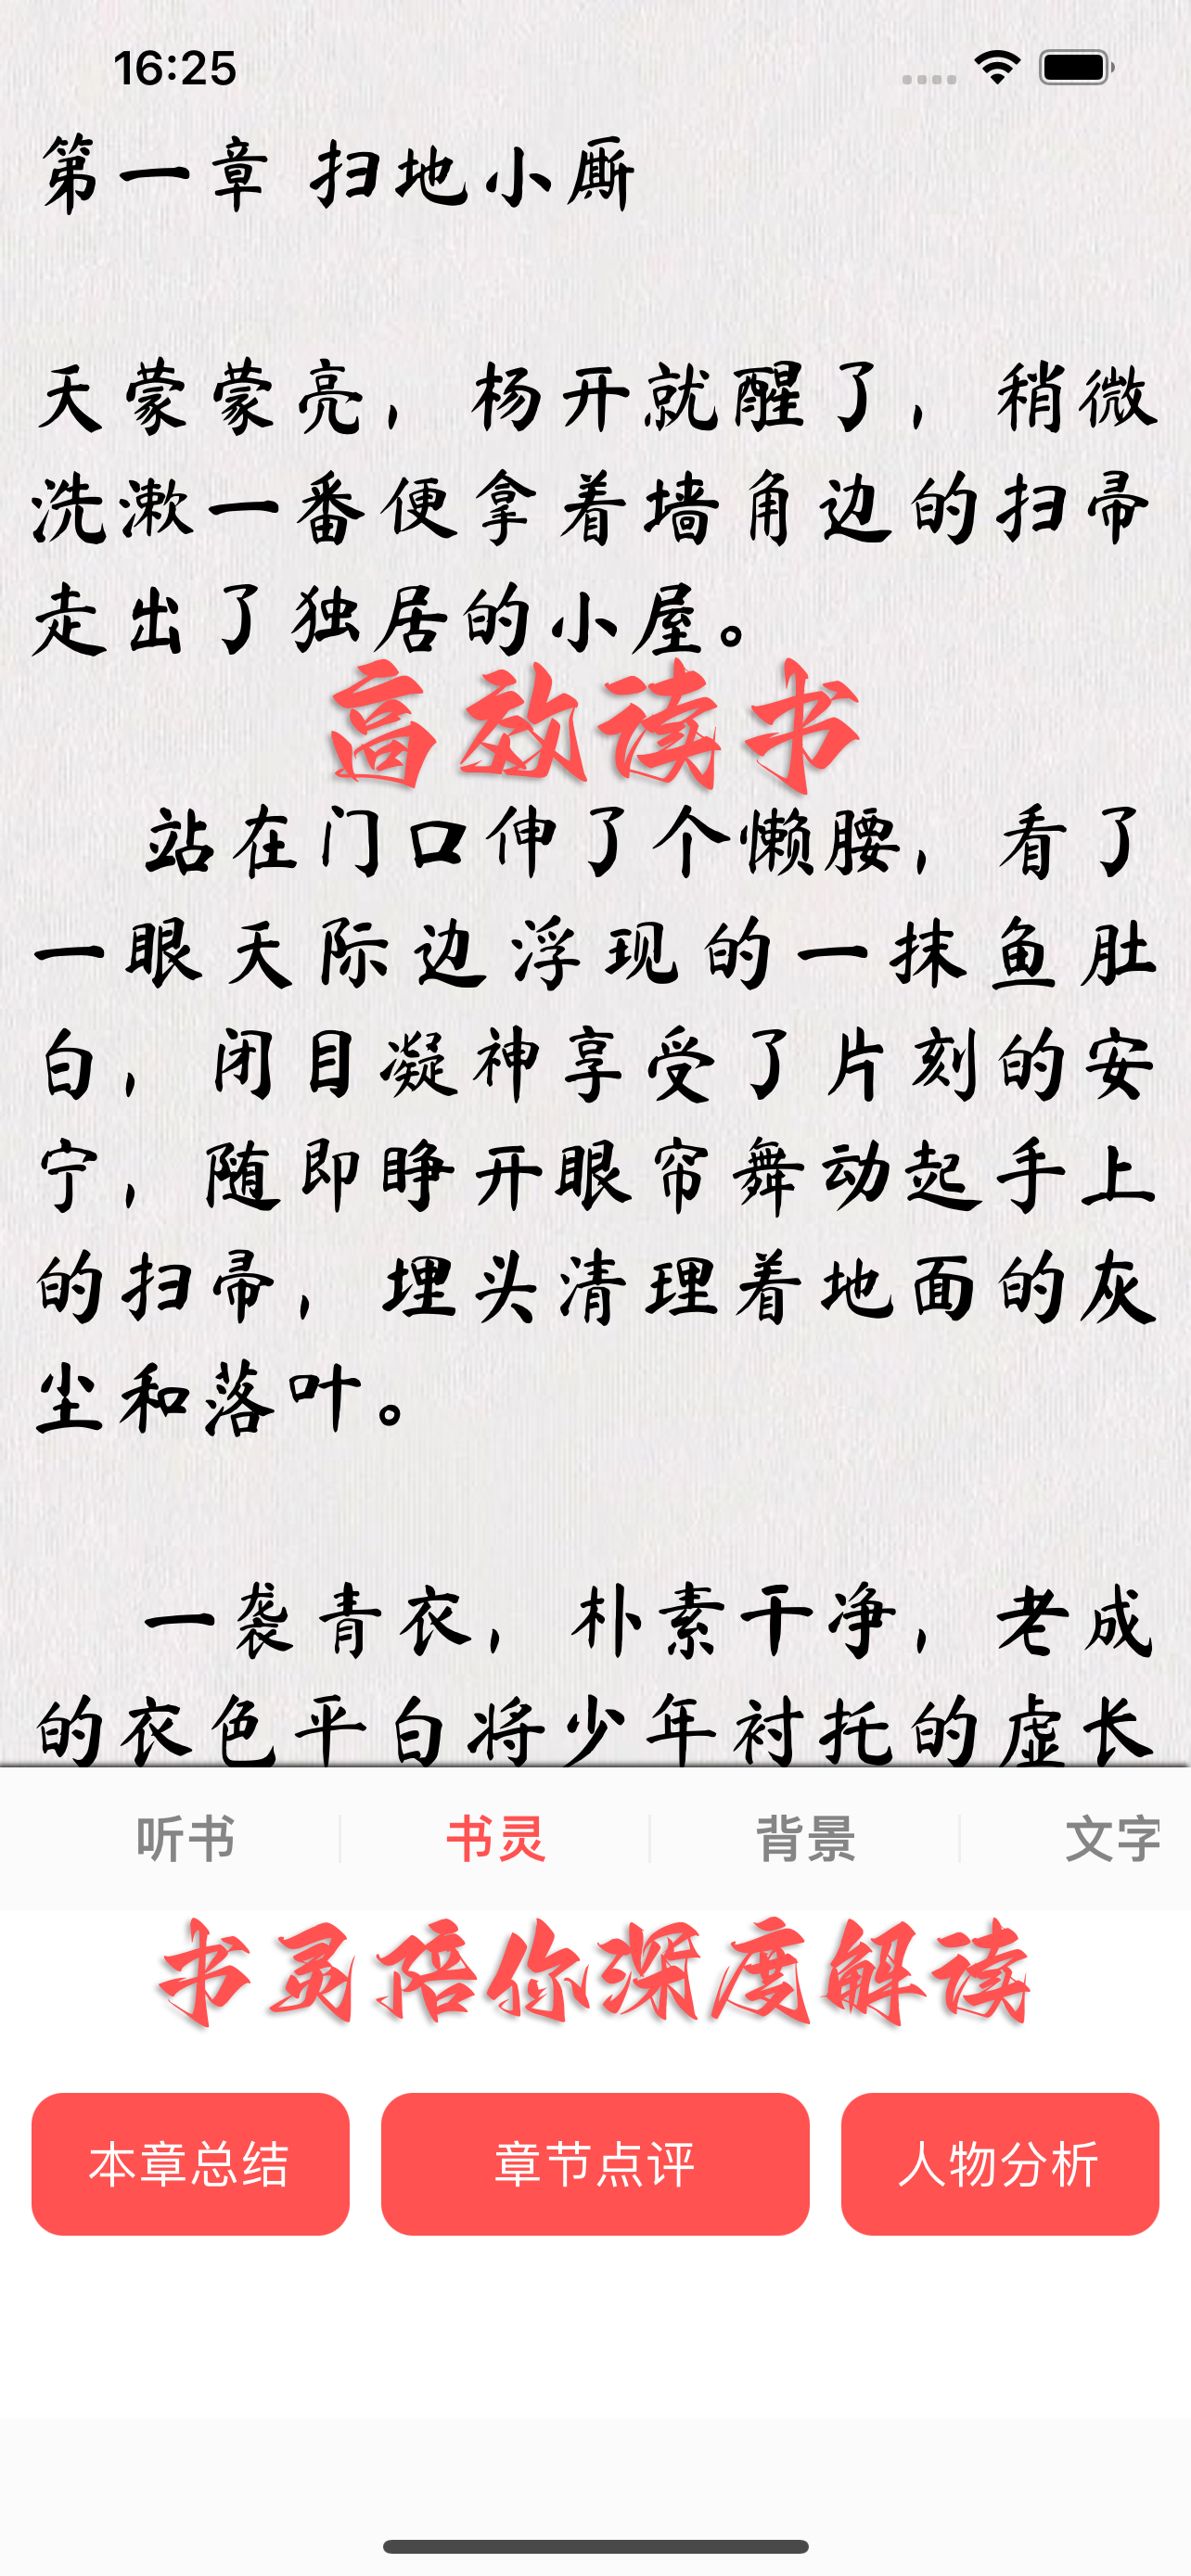 16:25
第一章 扫地小厮
天蒙蒙亮，杨开就醒了，稍微
洗漱一番便拿着墙角边的扫帚
走出了独居的小屋。
高效读书
站在门口伸了个懒腰，看了
一眼天际边浮现的一抹鱼肚
白，闭目凝神享受了片刻的安
宁，随即睁开眼帘舞动起手上
的扫帚，埋头清理着地面的灰
尘和落叶。
一袭青衣，朴素干净，老成
的衣色平白将少年衬托的虚长
听书 书灵 背景 文字
书灵陪你深度解读
本章总结 章节点评 人物分析